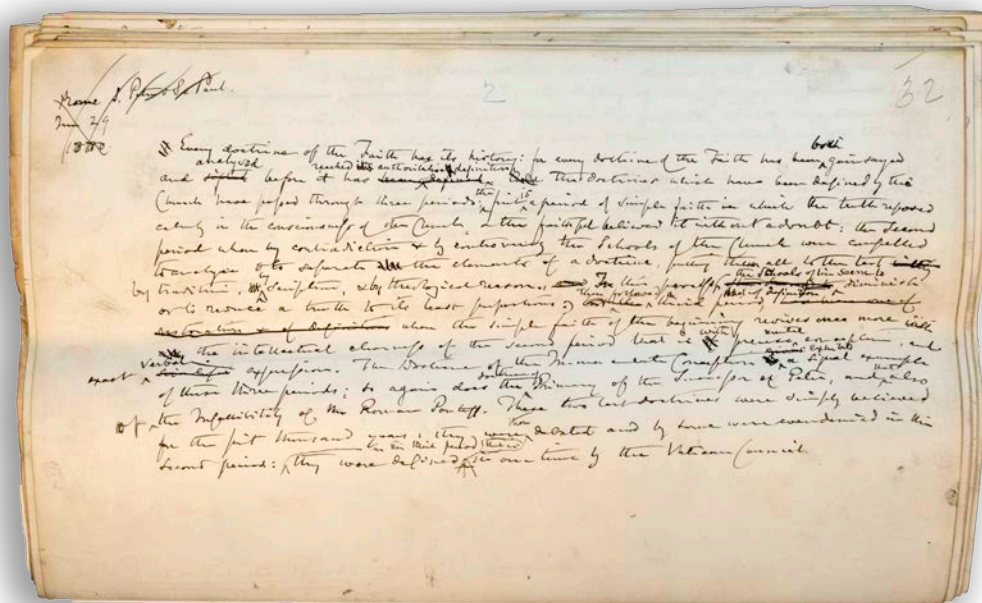 Rome S. Peter & St. Paul.
June 29
2
32
Every doctrine of the Faith has its history: for every doctrine of the Faith has been both gainsayed
and analysed before it has reached its authoritative definition the doctrines which have been defined by the
Church have passed through three periods: the first is a period of simple faith in which the truth reposed
calmly in the consciousness of the Church, & the faithful believed it without a doubt: the second
period when by contradiction & by controversy the Schools of the Church were compelled
to analyse & to separate the elements of a doctrine, putting them all to the test
by tradition, by Scripture, & by theological reason. In this period the Schools seem to diminish
or to reduce a truth to its least proportions; then follows the third period, that of definition
when the simple faith of the beginning revives once more with
the intellectual clearness of the second period that is with precise mental conception, and
exact verbal expression. The Doctrine of the Immaculate Conception a signal example
of these three periods; so again does the doctrine of Primacy of the Successor of Peter, and also that
of the Infallibility of the Roman Pontiff. These two last doctrines were simply believed
for the first thousand years: they were then debated and by some were condemned in the
second period: in the third period they were defined in our time by the Vatican Council.